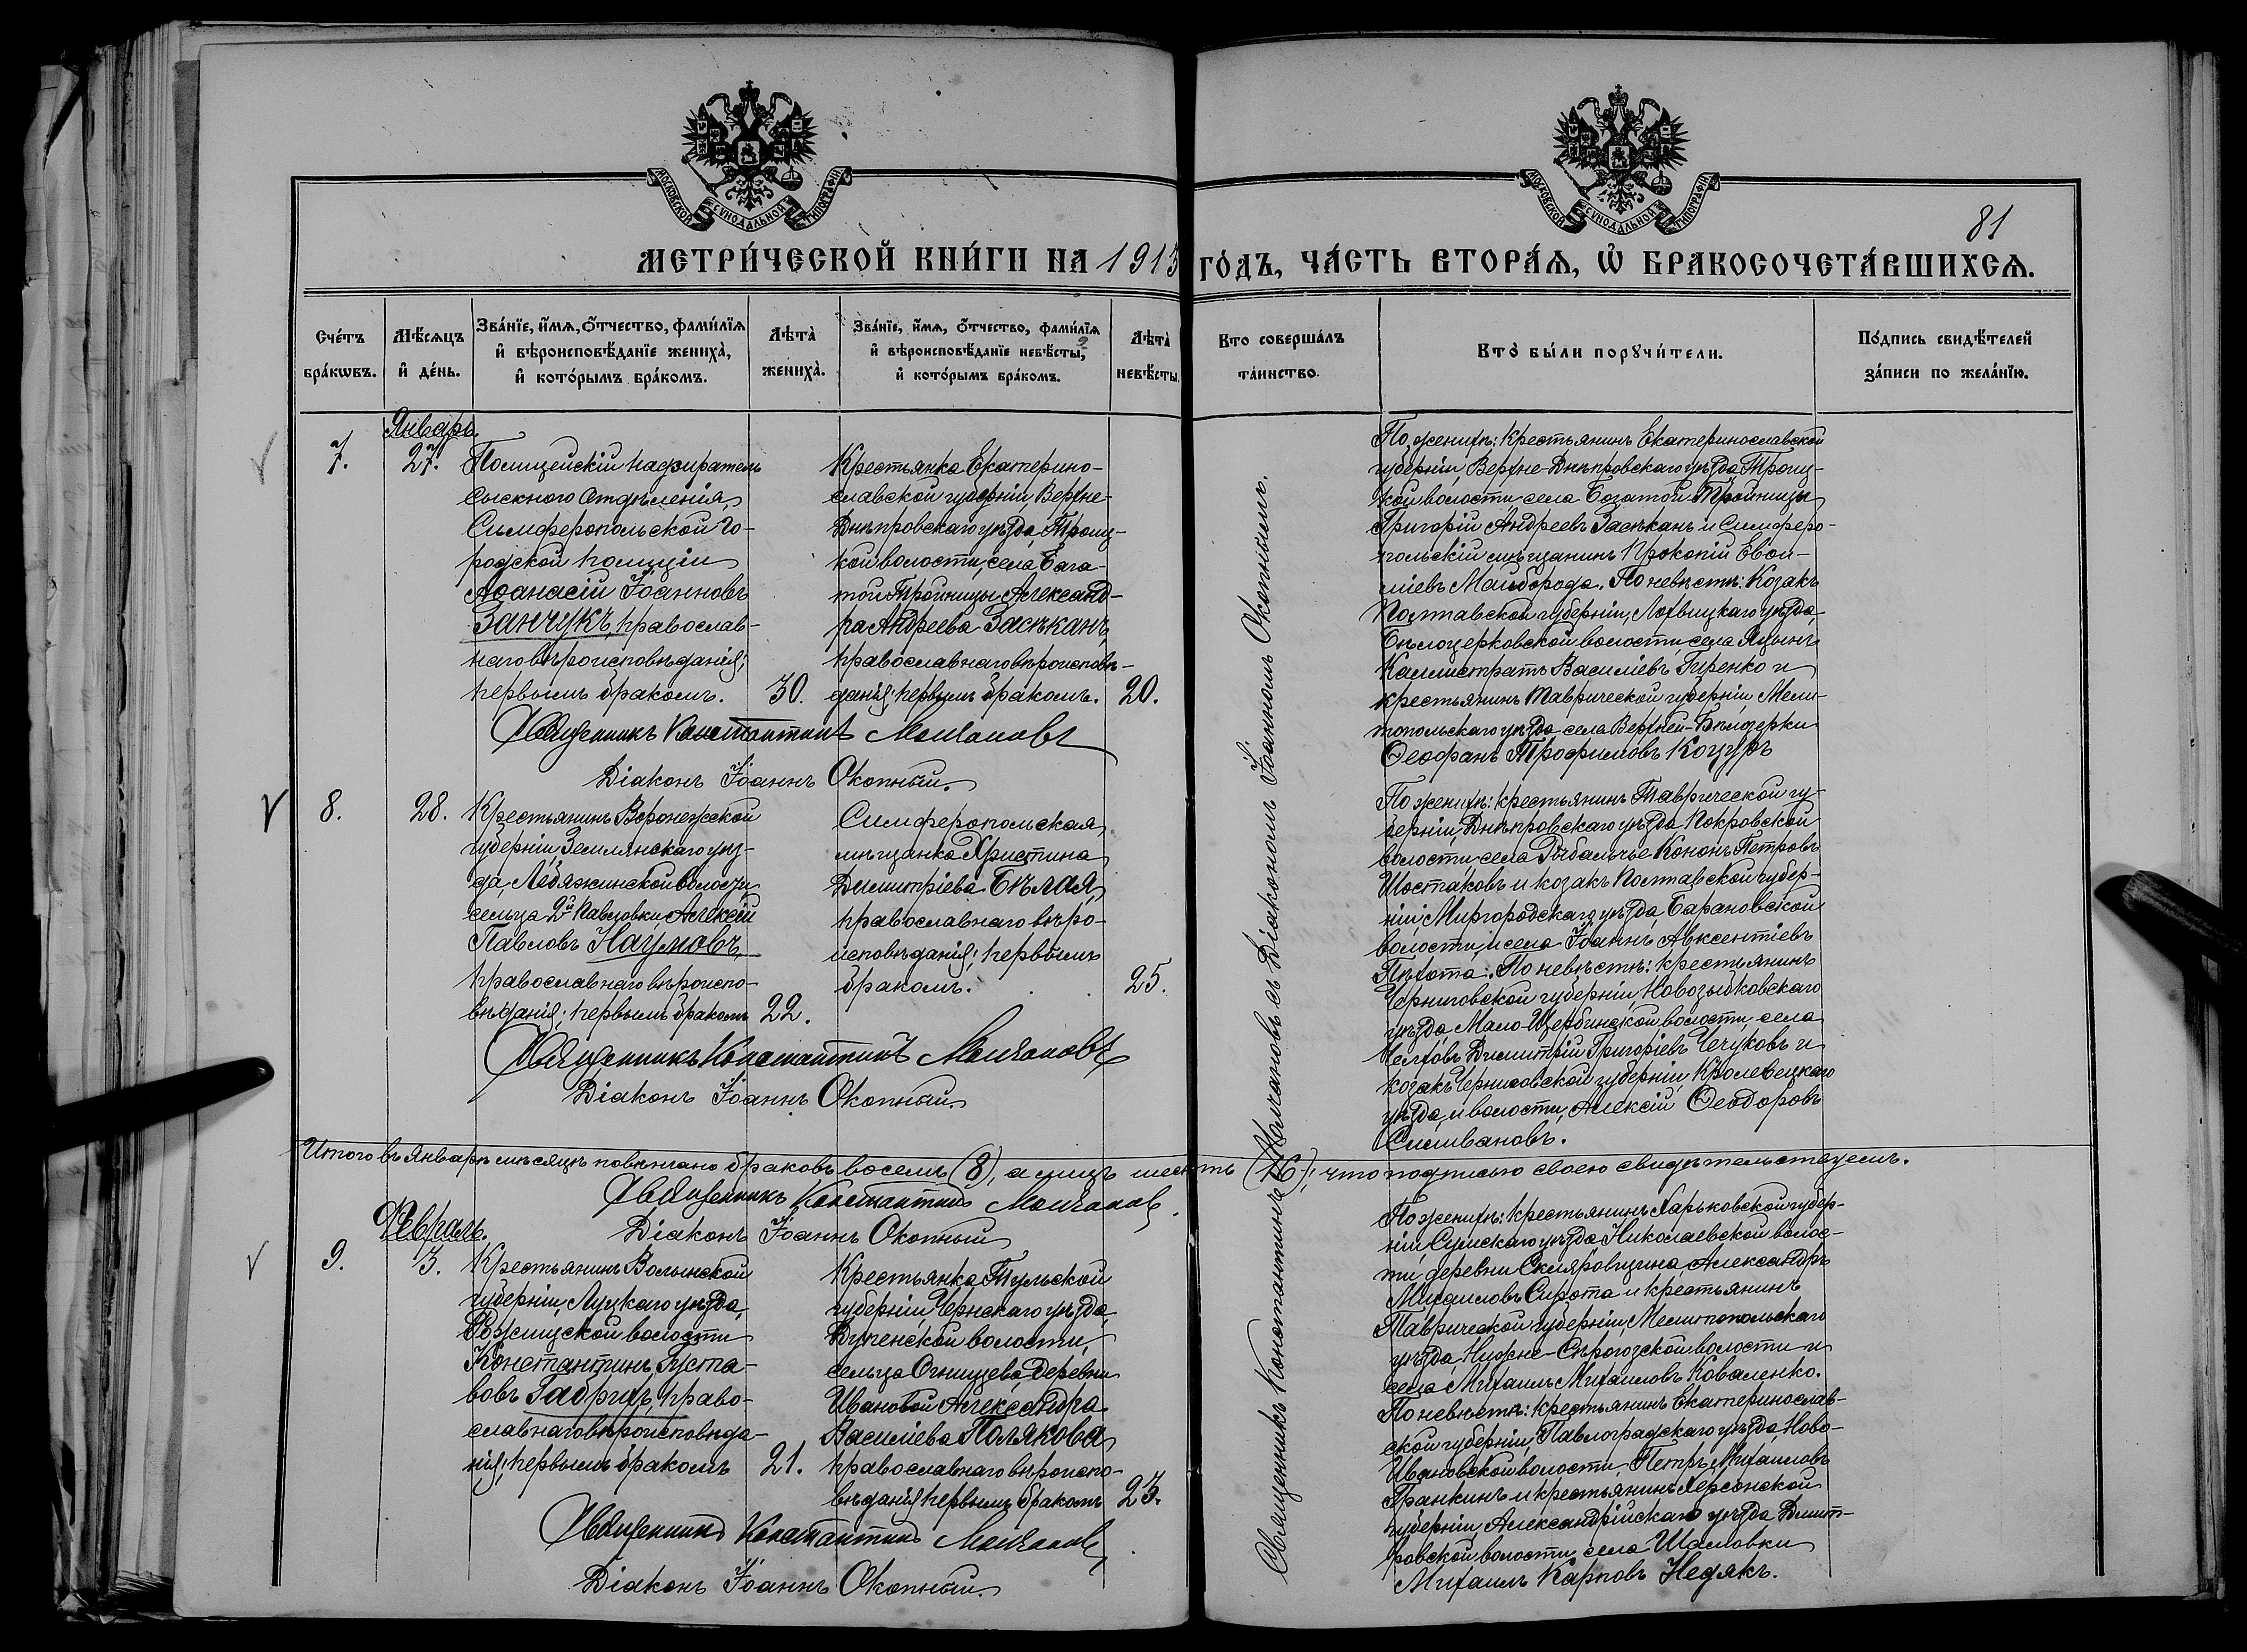 МОСКОВСКОЙ СУНОДАЛЬНОЙ ТИПОГРАФІИ
МОСКОВСКОЙ СУНОДАЛЬНОЙ ТИПОГРАФІИ
81
МЕТРИ́ЧЕСКОЙ КНИ́ГИ НА 1913 ГО́ДЪ, ЧА́СТЬ ВТОРА́Ѧ, Ѡ҆ БРАКОСОЧЕТА́ВШИХСѦ.
Сче́тъ
бра́кѡвъ.
Мѣ́сѧцъ
и҆ де́нь.
Зва́нїе, и҆́мѧ, ѻ҆́тчество, фами́лїѧ
и҆ вѣроисповѣ́данїе жениха̀,
и҆ кото́рымъ бра́комъ.
Лѣта̀
жениха̀.
Зва́нїе, и҆́мѧ, ѻ҆́тчество, фами́лїѧ
и҆ вѣроисповѣ́данїе невѣ́сты,
и҆ кото́рымъ бра́комъ.
Лѣта̀
невѣ́сты.
Кто соверша́лъ
та́инство.
Кто̀ бы́ли порꙋчи́тели.
По́дпись свидѣ́телей
за́писи по жела́нїю.
Январь
7.
27.
Полицейскій надзиратель
сыскного отдѣленія
Симферопольской го-
родской полиціи
Аѳанасій Іоанновъ
Занчукъ, православ-
наго вѣроисповѣданія;
первымъ бракомъ.
30.
Крестьянка Екатерино-
славской губерніи, Верхне-
Днѣпровскаго уѣзда, Троиц-
кой волости, села Бога-
той Тройницы Александ-
ра Андреева Засѣканъ
православнаго вѣроисповѣ-
данія; первымъ бракомъ.
20.
Священникъ Константинъ Молчановъ
Діаконъ Іоаннъ Окопный.
По женихѣ: крестьянинъ Екатеринославской
губерніи, Верхне-Днѣпровскаго уѣзда, Троиц-
кой волости села Богатой Тройницы
Григорій Андреевъ Засѣканъ и Симферо-
польскій мѣщанинъ Прокопій Евои-
міевъ Майборода. По невѣстѣ: Козакъ
Полтавской губерніи, Лохвицкаго уѣзда,
Бѣлоцерковской волости села Яцынъ
Каллистратъ Василіевъ Гиренко и
крестьянинъ Таврической губерніи, Мели-
топольскаго уѣзда села Верхней-Бѣлозерки
Ѳеофанъ Трофимовъ Коцуръ
8.
28.
Крестьянинъ Воронежской
губерніи, Землянскаго уѣз-
да, Лебяжинской волости,
сельца 2й Павловки, Алексій
Павловъ Наумовъ,
православнаго вѣроиспо-
вѣданія; первымъ бракомъ
22.
Симферопольская
мѣщанка Христина
Димитріева Бѣлая,
православнаго вѣро-
исповѣданія; первымъ
бракомъ.
25.
Священникъ Константинъ Молчановъ
Діаконъ Іоаннъ Окопный.
По женихѣ: крестьянинъ Таврической гу-
берніи, Днѣпровскаго уѣзда, Покровской
волости, села Рыбальчье Кононъ Петровъ
Шостаковъ и козакъ Полтавской губер-
ніи, Миргородскаго уѣзда, Барановской
волости, и села Іоаннъ Авксентіевъ
Пѣхота. По невѣстѣ: крестьянинъ
Черниговской губерніи, Новозыбковскаго
уѣзда, Мало-Щербинской волости, села
Челховъ Димитрій Григоріевъ Чечуковъ и
козакъ Черниговской губерніи Кролевецкаго
уѣзда, и волости, Алексій Ѳеодоровъ
Силивановъ.
Итого въ Январѣ мѣсяцѣ повѣнчано браковъ восемь (8), а лицъ шесть (16); что подписью своею свидѣтельствуемъ.
Священникъ Константинъ Молчановъ
Діаконъ Іоаннъ Окопный
Февраль.
9.
3.
Крестьянинъ Волынской
губерніи, Луцкаго уѣзда,
Рожищской волости
Константинъ Густа-
вовъ Габрихъ, право-
славнаго вѣроисповѣда-
нія; первымъ бракомъ
21.
Крестьянка Тульской
губерніи, Чернскаго уѣзда,
Дупенской волости,
сельца Огнищева, деревни
Ивановой Александра
Василіева Полякова
православнаго вѣроиспо-
вѣданія, первымъ бракомъ
23.
Священникъ Константинъ Молчановъ
Діаконъ Іоаннъ Окопный.
По женихѣ: крестьянинъ Харьковской губер-
ніи, Сумскаго уѣзда, Николаевской волос-
ти деревни Скляровщина, Александръ
Михаиловъ Сирота и крестьянинъ
Таврической губерніи, Мелитопольскаго
уѣзда, Нижне-Сѣрогозской волости и
села Михаилъ Михаиловъ Коваленко.
По невѣстѣ: крестьянинъ Екатеринослав-
ской губерніи, Павлоградскаго уѣзда, Ново-
Ивановской волости, Петръ Михаиловъ
Гранкинъ и крестьянинъ Херсонской
губерніи, Александрійскаго уѣзда Дмит-
ровской волости, села Шамовки
Михаилъ Карповъ Недякъ.
Священникъ Константинъ Молчановъ съ Діакономъ Іоанномъ Окопнымъ.